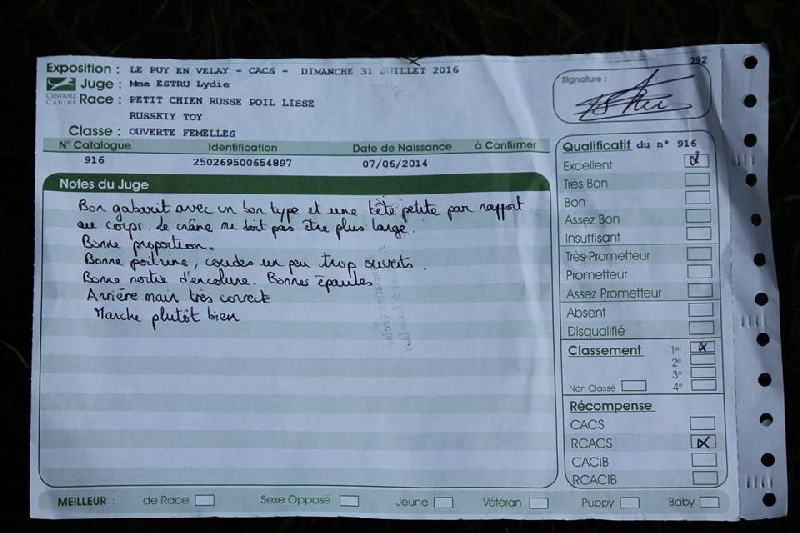 292
Exposition : LE PUY EN VELAY - CACS - DIMANCHE 31 JUILLET 2016
Juge : Mme ESTRU Lydie
CENTRALE CANINE
Race : PETIT CHIEN RUSSE POIL LISSE
RUSSKIY TOY
Classe : OUVERTE FEMELLES
Signature :
N° Catalogue Identification Date de Naissance à Confirmer
916 250269500654897 07/06/2014
Notes du Juge
Bon gabarit avec un bon type et une tête petite par rapport
au corps. le crâne ne doit pas être plus large.
Bonne proportion.
Bonne poitrine, coudes un peu trop ouverts.
Bonne sortie d'encolure. Bonnes épaules
Arrière main très correct
Marche plutôt bien
Qualificatif du n° 916
Excellent x
Très Bon
Bon
Assez Bon
Insuffisant
Très-Prometteur
Prometteur
Assez Prometteur
Absent
Disqualifié
Classement 1er x
2e
3e
Non Classé 4e
Récompense
CACS
RCACS x
CACIB
RCACIB
MEILLEUR : de Race Sexe Opposé Jeune Vétéran Puppy Baby